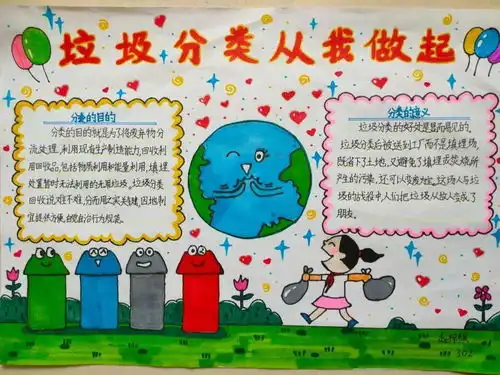 垃圾分类从我做起
分类的目的
分类的目的就是为了将废弃物分
流处理,利用现有生产制造能力,回收利
用回收品,包括物质利用和能量利用,填埋
处置暂时无法利用的无用垃圾。垃圾分类
回收说难不难,分而用之实关键,因地制
宜提供方便,自觉自治行为规范。
分类的意义
垃圾分类的好处是显而易见的,
垃圾分类后被送到工厂而不是填埋场,
既省下了土地,又避免了填埋或焚烧所
产生的污染,还可以变废为宝。这场人与垃
圾的战役中,人们把垃圾从敌人变成了
朋友。
302